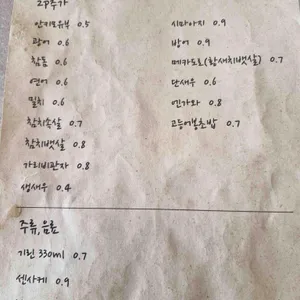 2p추가
안키모유부 0.5
광어 0.6
참돔 0.6
연어 0.6
밀치 0.6
참치속살 0.7
참치뱃살 0.8
가리비관자 0.8
생새우 0.4
시마아지 0.9
방어 0.9
메카도로(황새치뱃살) 0.7
단새우 0.6
엔가와 0.8
고등어봉초밥 0.7
주류, 음료
기린 330ml 0.7
센사케 0.9